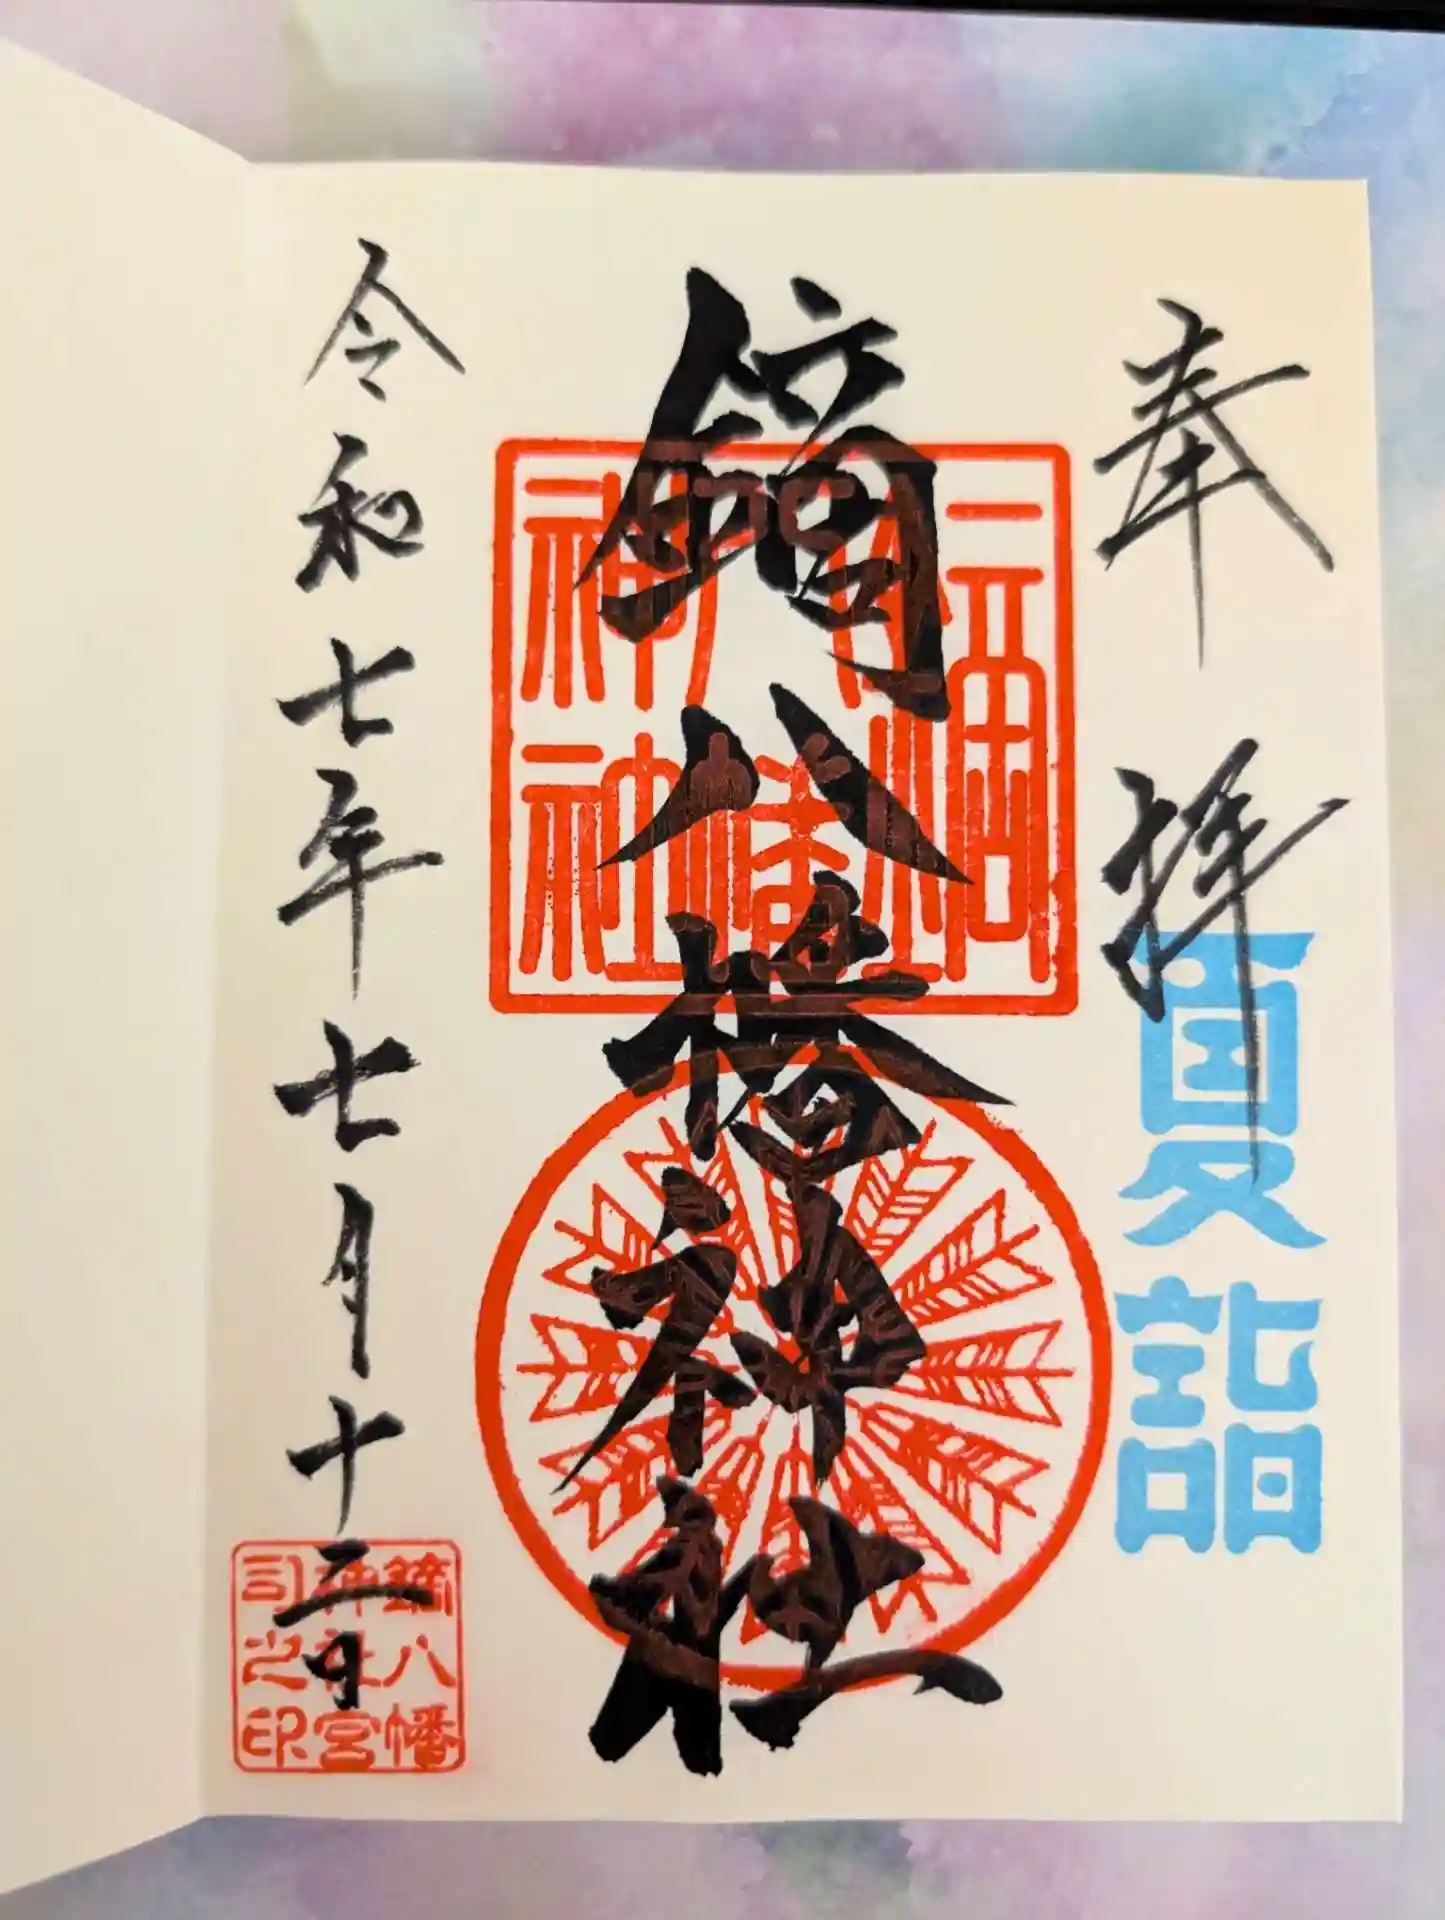 奉拝
夏詣
鏑八幡神社
鏑
八幡
神社
令和七年七月十三日
鏑八幡
神社宮
司之印